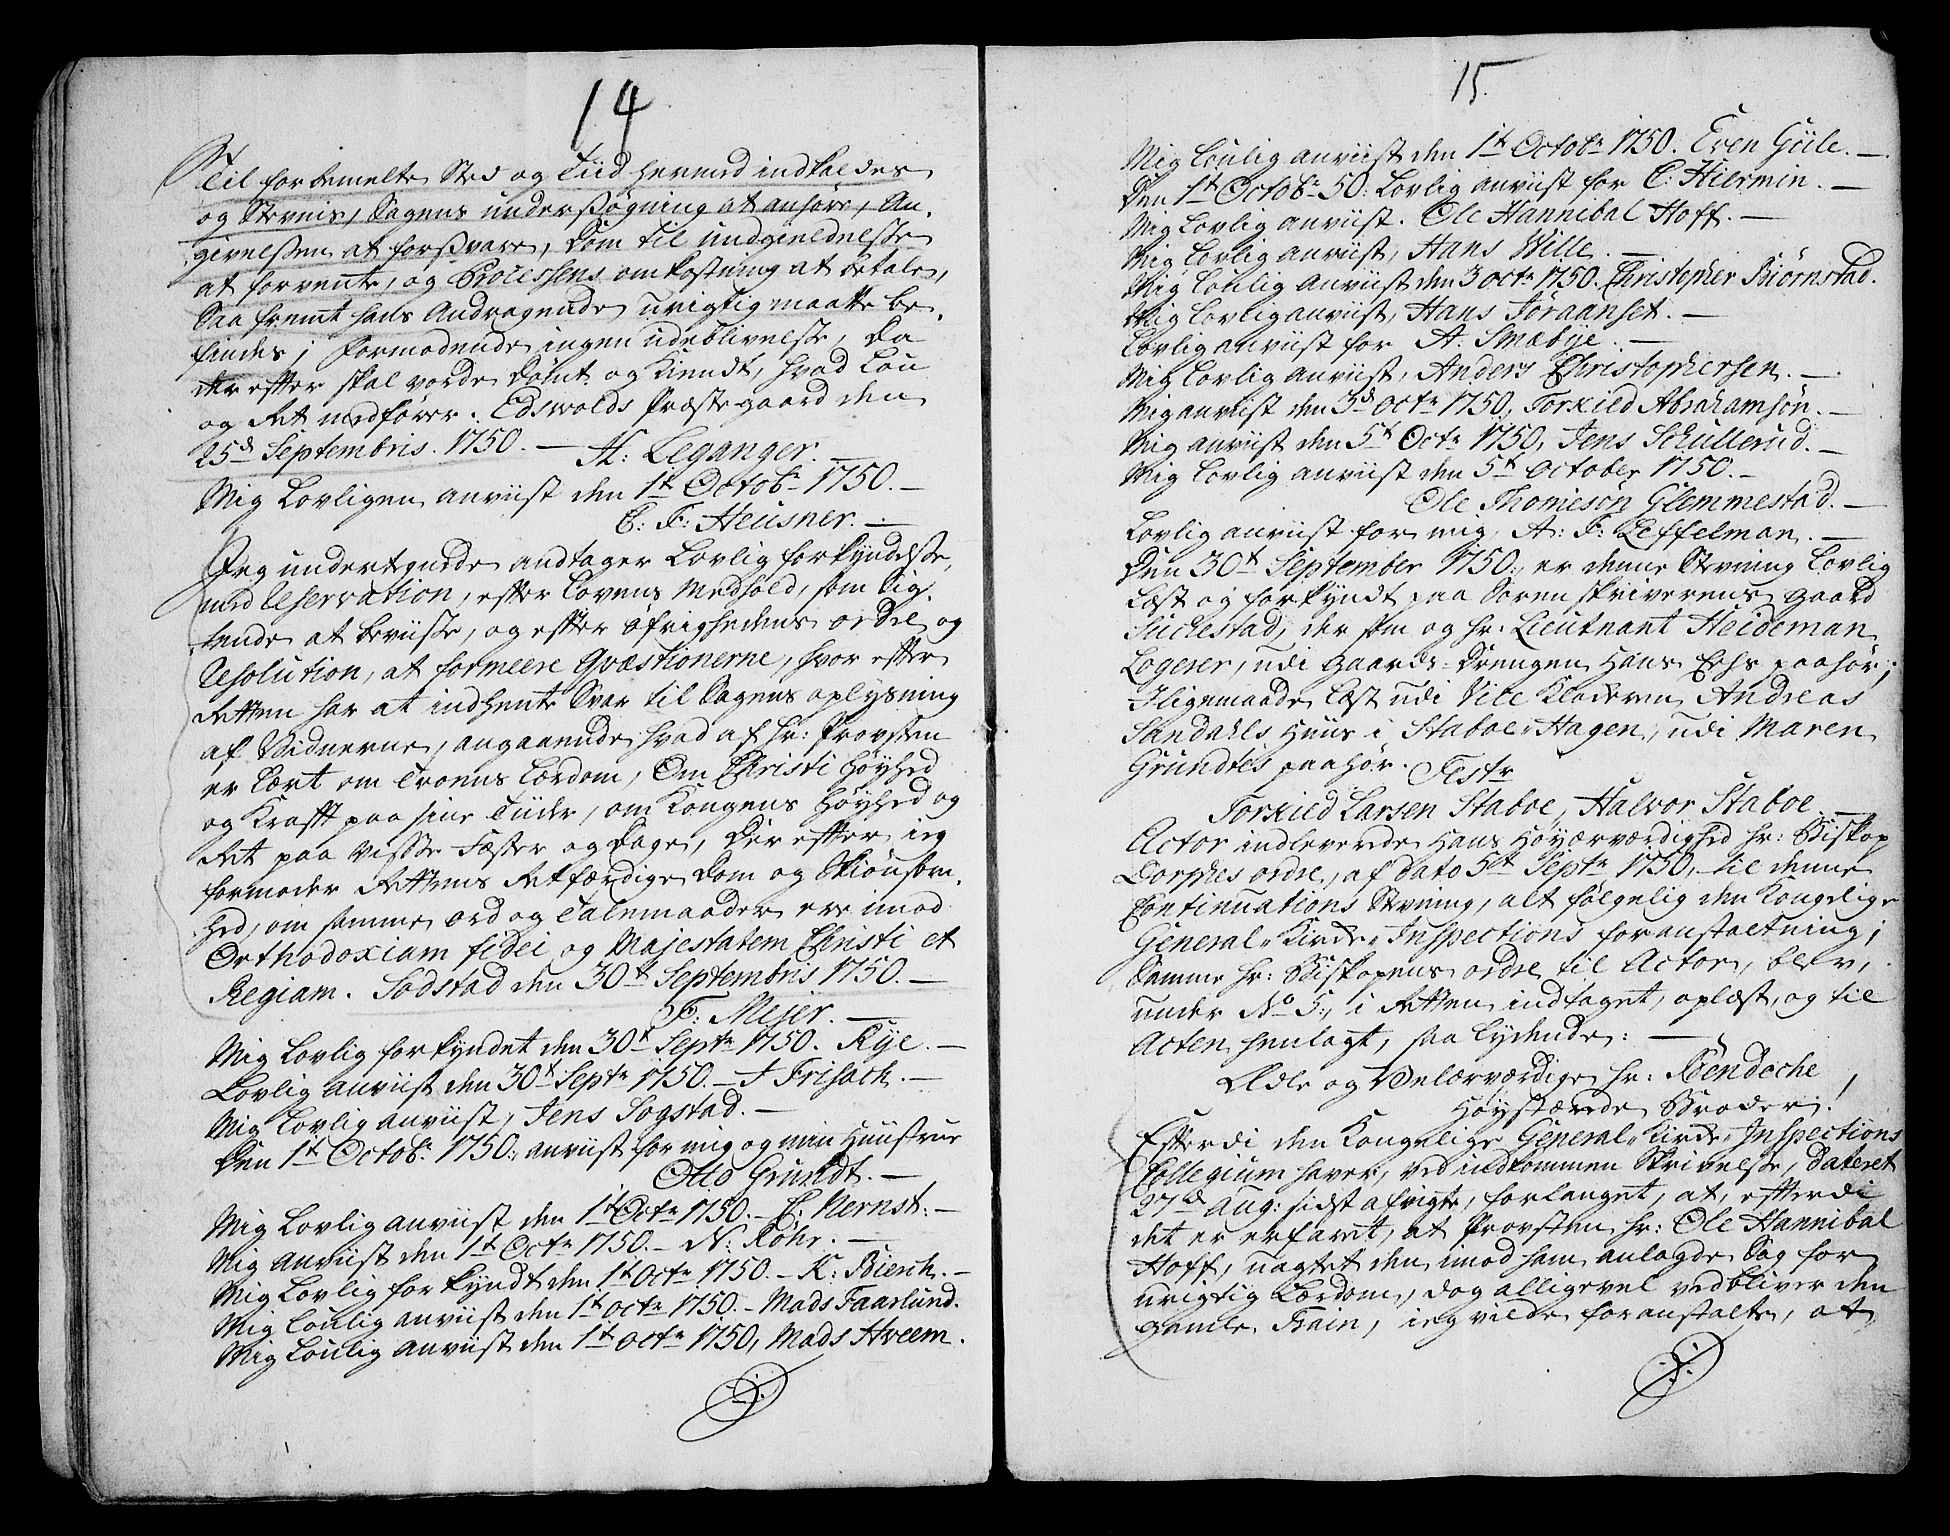 14
Til forbemelte Sted og Tiid herved indkaldes
og Stevnis, Sagens undersøgning at anhøre, An-
givelsen at forsvare, Dom til undgieldelse
at forvente, og Processens omkostning at betale,
Saafremt hans Andragende urigtig maatte be-
findes; formodende ingen udeblivelse, da
der efter skal vorde Dømt og Kiendt, hvad Lov
og Ret medfører. Edsvolds Præstegaard den
25de Septembris. 1750. — H: Leganger. —
Mig Lovligen anviist den 1t Octobr 1750. —
C: F: Heusner. —
Jeg undertegnede andtager Lovlig forkyndelse,
med Reservation, efter Lovens Medhold, som Sig-
tende at beviise, og efter Øfrighedens ordre og
Resolution, at formeere Qvæstionerne, hvor efter
Retten har at indhente Svar til Sagens oplysning
af Vidnerne, angaaende hvad af Hr: Provsten
er Lært om Troens Lærdom, Om Christi Høyhed
og Krafft paa sine Tiider, om Kongens Høyhed og
Ret paa visse Fæster og Dage, Der efter ieg
formoder Rettens Retfærdige Dom og Skiønsom-
hed, om samme ord og Talemaader ere imod
Orthodoxiam fidei og Majestatem Christi et
Regiam. Sodstad den 30te Septembris 1750. —
F: Mejer. —
Mig Lovlig forkyndet den 30t Septr 1750. Rye. —
Lovlig anviist den 30t Septr 1750. — J Frisach. —
Mig Lovlig anviist, Jens Sogstad. —
Den 1t Octob: 1750., anviist for mig og min Huustrue
Otto Grundt. —
Mig Lovlig anviist den 1t Octr 1750. — C: Nernst: —
Mig anviist den 1t Octr 1750. — N: Röhr. —
Mig Lovlig forkyndt den 1t Octr 1750. — K: Biersh. —
Mig Loulig anviist den 1t octr 1750. — Mads Faarlund.
Mig Loulig anviist den 1t octr 1750, Mads Hveem.
15.
Mig Loulig anviist den 1t Octobr 1750. Even Giile. —
Den 1t Octobr 50: Lovlig anviist for C: Hiermin. —
Mig Lovlig anviist. Ole Hannibal Hoff. —
Mig Lovlig anviist, Hans Wille. —
Mig Loulig Anviist den 3 octr 1750. Christopher Biørnstad.
Mig Lovlig anviist, Hans Jøraanset. —
Lovlig anviist for A: Smebye. —
Mig Lovlig anviist, Anders Christophersen. —
Mig anviist den 3d octr 1750, Torkild Abrahamsön. —
Mig anviist den 5t Octr 1750, Jens Schullerud. —
Mig Lovlig anviist den 5t October 1750. —
Ole Thomesön Glemmestad. —
Lovlig anviist for mig, A: F: Leffelman. —
Den 30t September 1750., er denne Stevning Lovlig
Læst og forkyndt paa Sorenskriverens Gaard
Suchestad, der som og Hr: Lieutnant Heideman
Logerer, udi Gaards-Drengen Hans Echs paahør;
Iligemaade Læst udi Vice Klocheren Andreas
Sandahls Huus i Staboe-Hagen, udi Maren
Grundtes paahør. Testr
Torkild Larsen Staboe, Halvor Staboe —
Actor indleverede Hans Høyærværdighed Hr: Biskop
Dorphes ordre, af dato 5te Septr 1750, til denne
Continuations Stevning, alt følgelig den Kongelige
General-Kirke-Inspections foranstaltning;
Samme Hr: Biskopens ordre til Actor, blev,
under No 5, i Retten indtaget, oplæst, og til
Acten henlagt, saa lydende: —
Ædle og Velærværdige Hr: Rêndeche
Høystærede Broder!
Efterdi den Kongelige General-Kirke-Inspections
Collegium haver, ved indkommen Skrivelse, dateret
27de Aug: sidst afvigte, forlanget, at, efterdi
det er erfaret, at Provsten Hr: Ole Hannibal
Hoff, uagtet den imod ham anlagde Sag for
urigtig Lærdom, dog alligevel vedbliver den
gamle Train, ieg vilde foranstalte, at